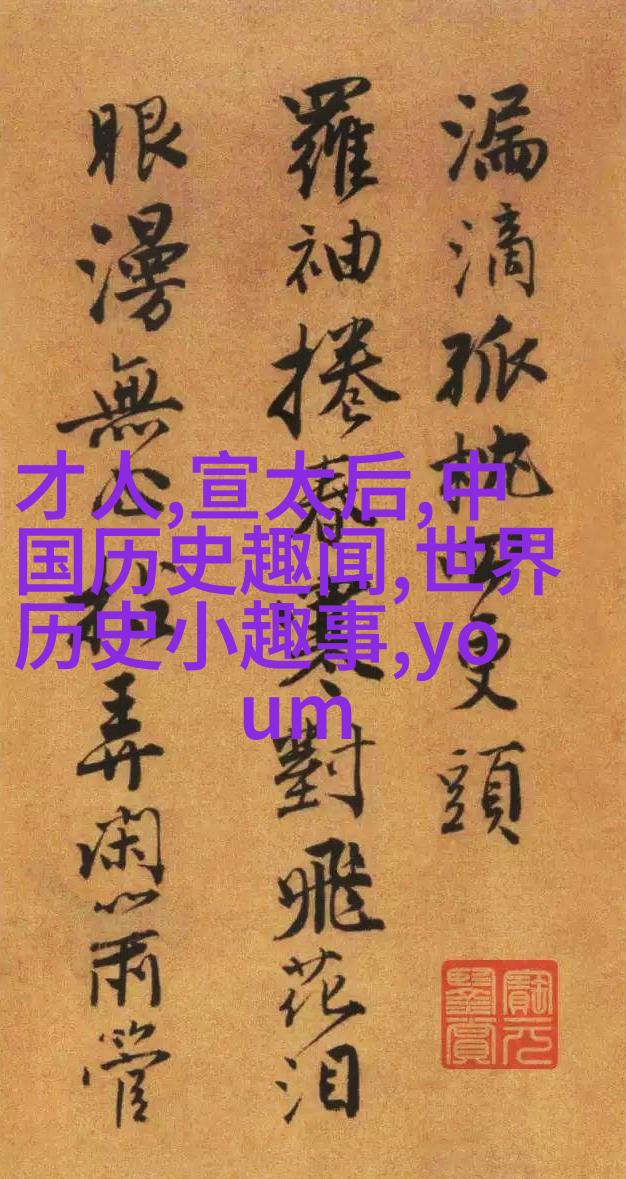 漏滴孤枕更頭
羅袖捲春寒對飛花泪
眼漫無心弄閑管
才人,宣太后,中
国历史趣闻,世界
历史小趣事,yo
um